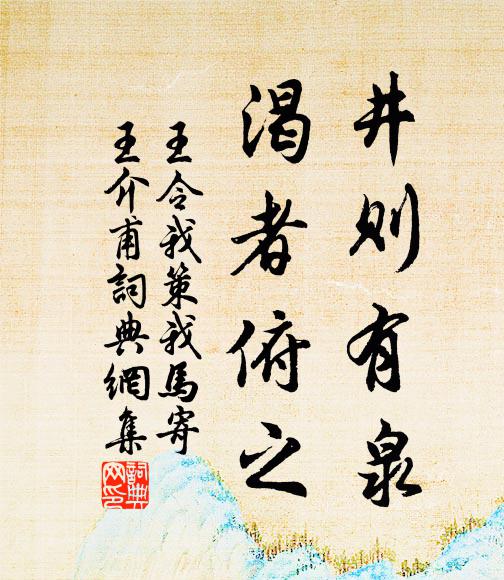 井則有泉
渴者俯之
王令我策我馬寄
王介甫詞典網集
詞典網印